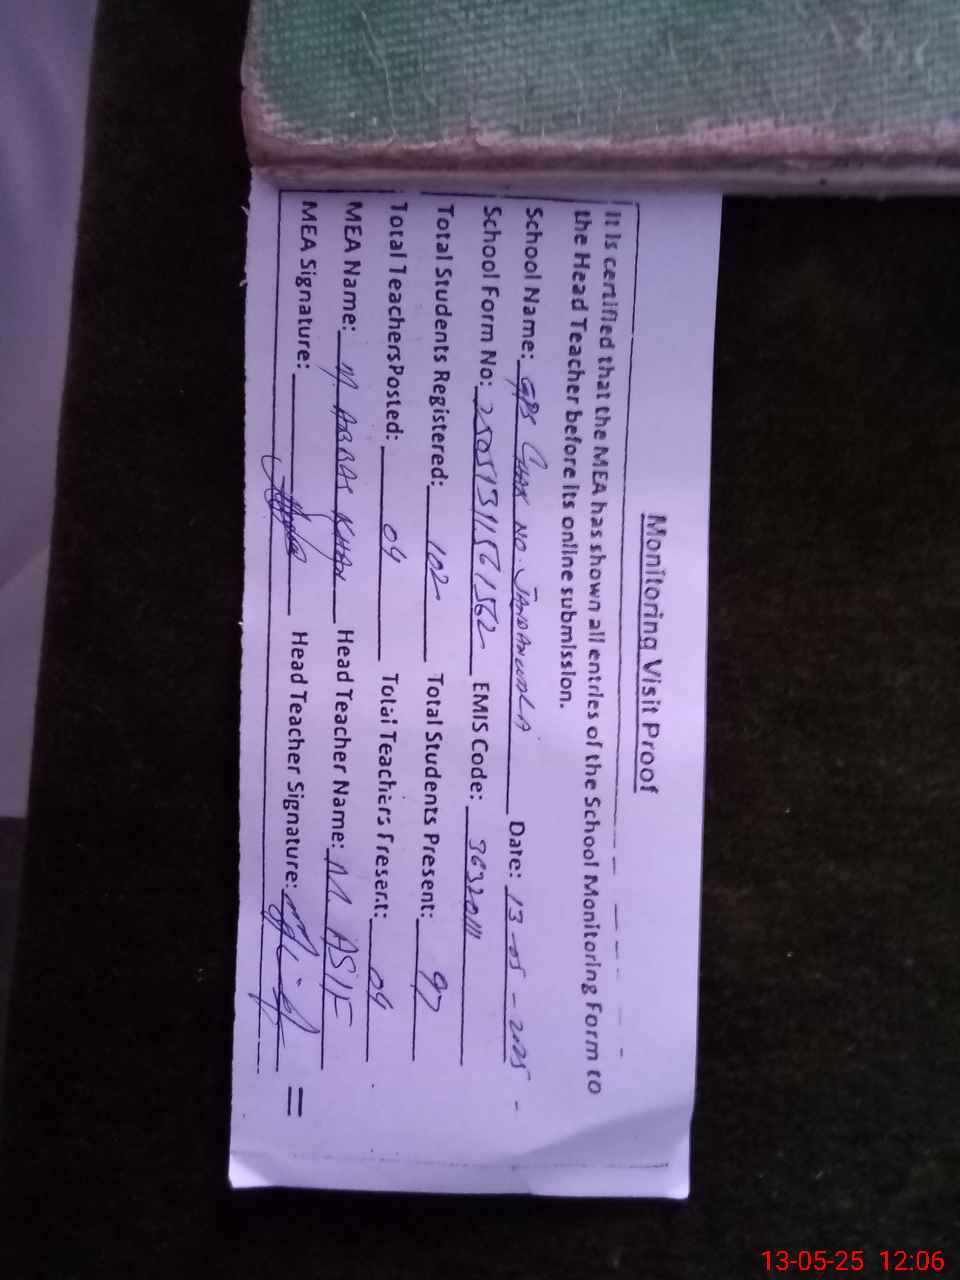 Monitoring Visit Proof
It is certified that the MEA has shown all entries of the School Monitoring Form to
the Head Teacher before its online submission.
School Name: GPS CHAK NO. JANDANWALA Date: 13-05-2025-
School Form No: 25051311561562 EMIS Code: 36320111
Total Students Registered: 102 Total Students Present: 97
Total TeachersPosted: 04 Total Teachers Present: 04
MEA Name: M. ABBAS KHAN Head Teacher Name: M. ASIF
MEA Signature: Head Teacher Signature:
13-05-25 12:06